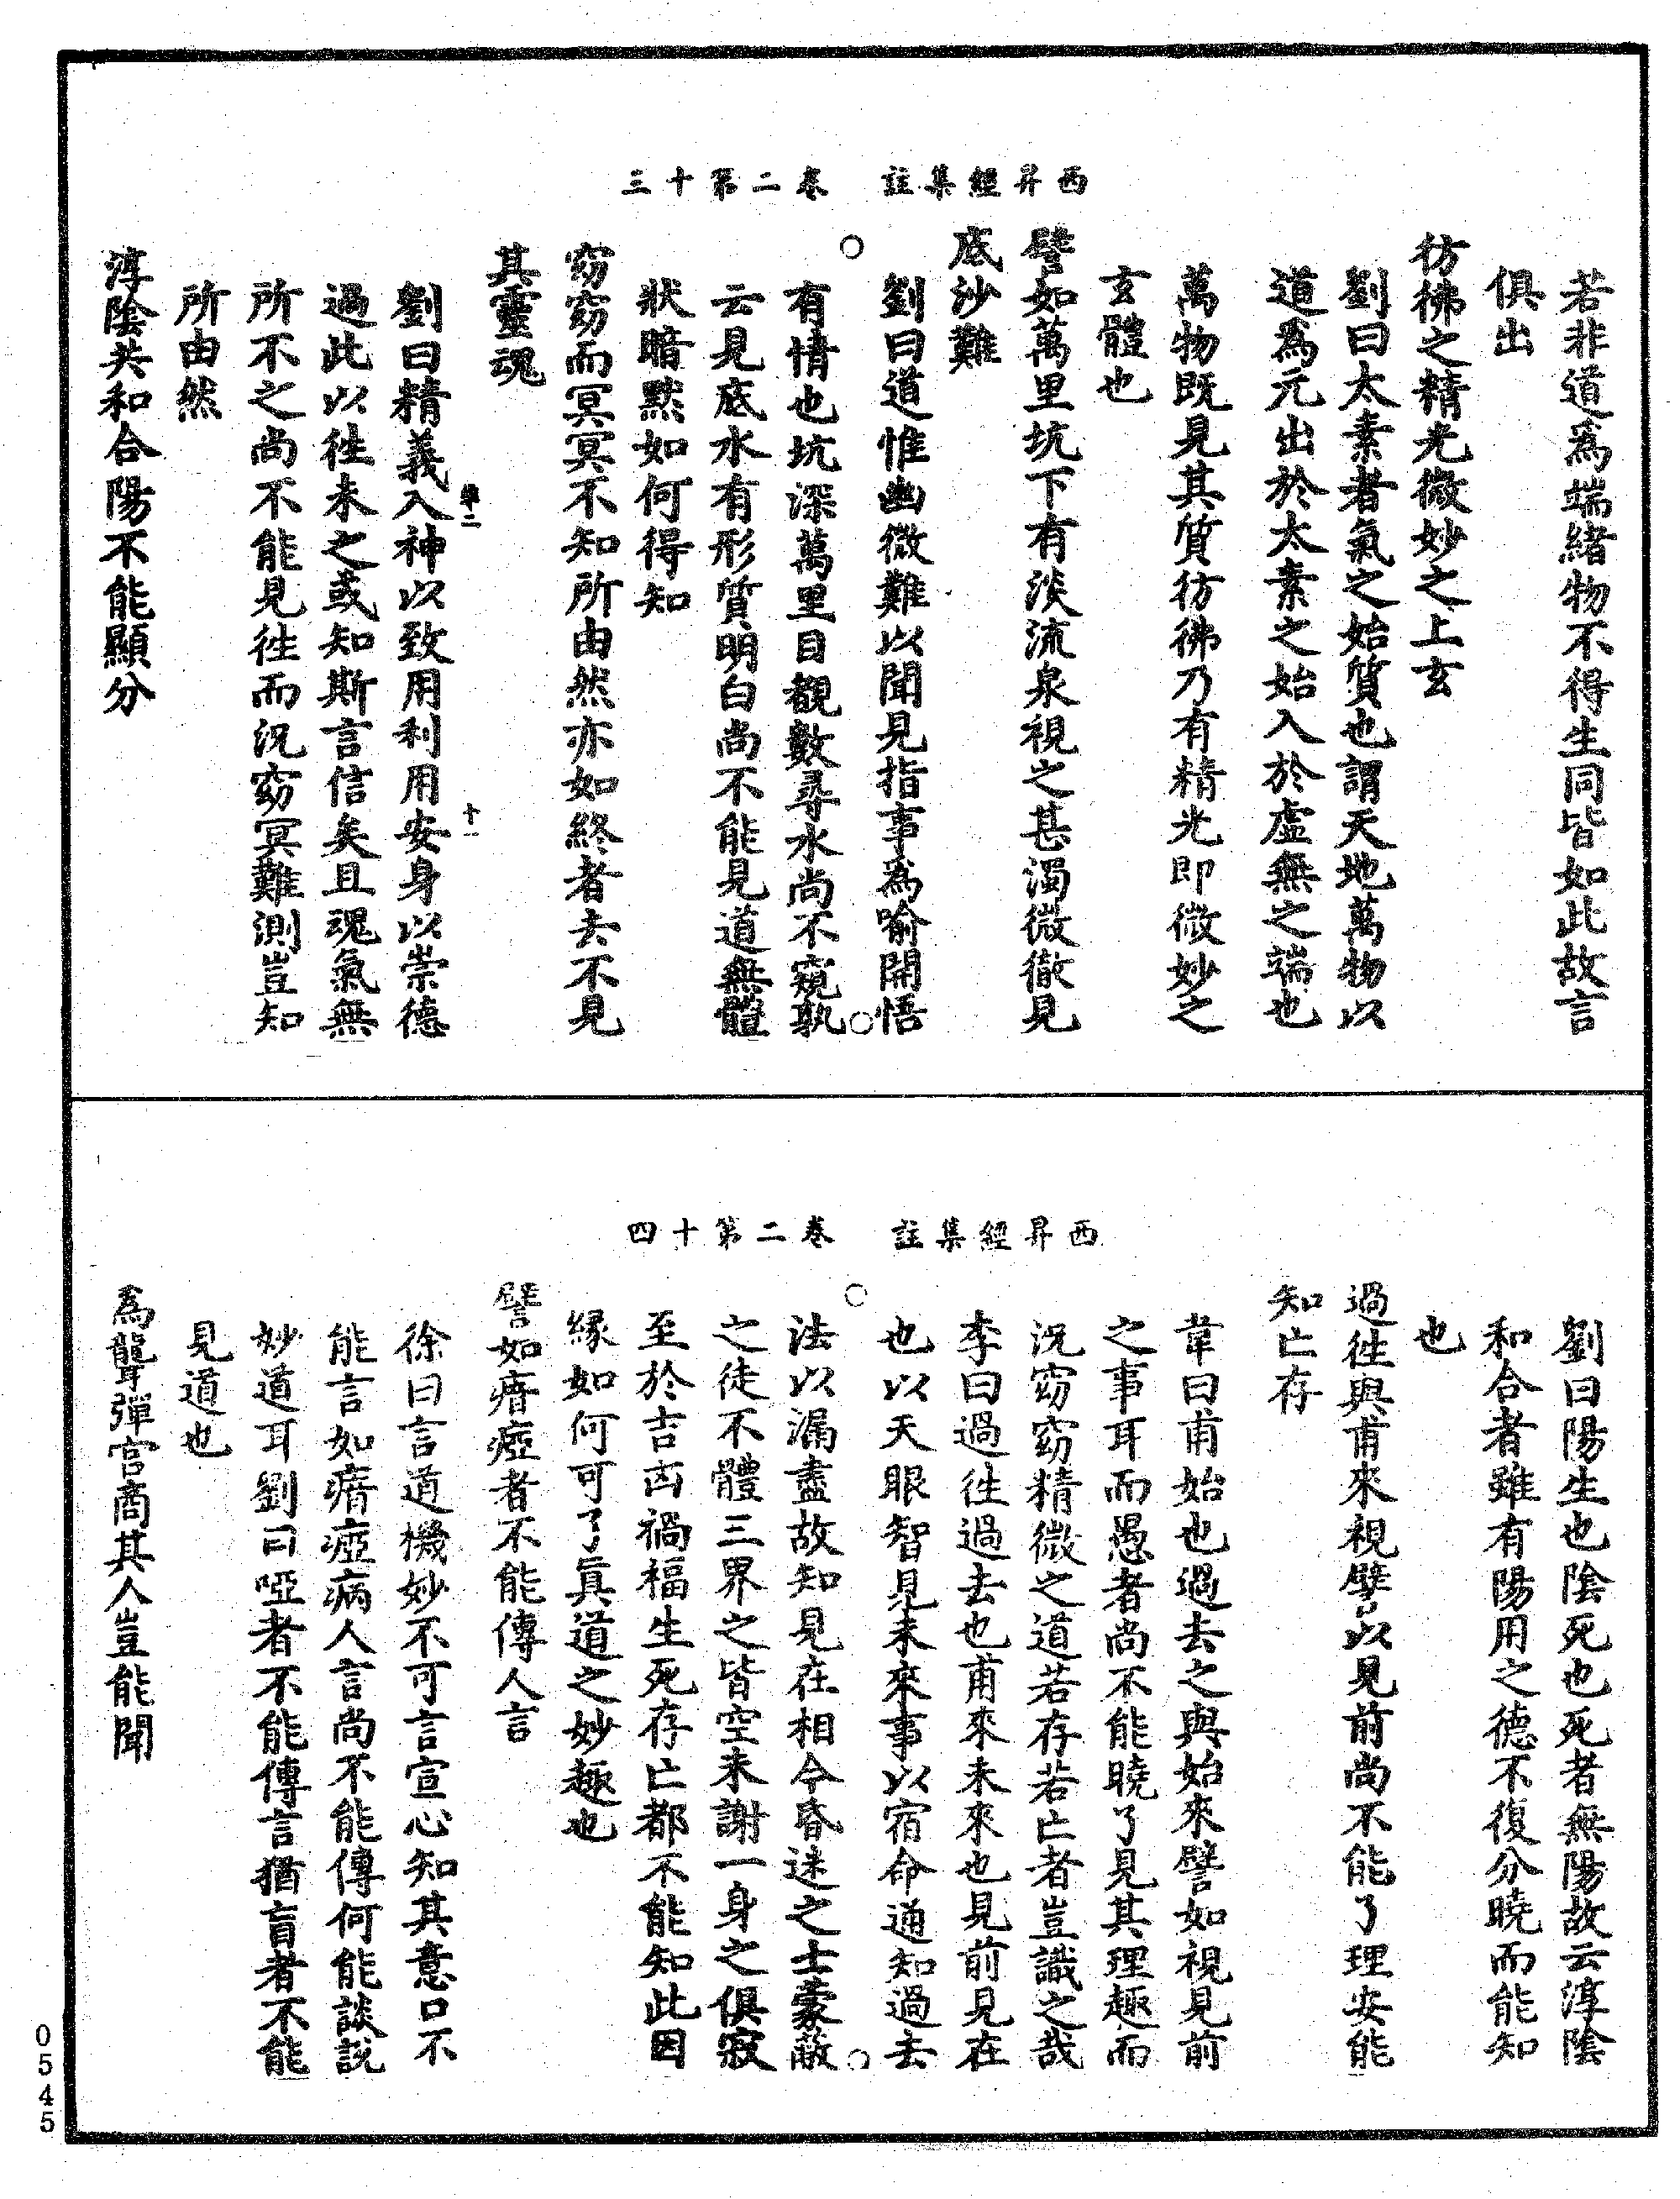 西昇經集註　卷二第十三
若非道爲端緒物不得生同皆如此故言
俱出
彷彿之精光微妙之上玄
劉曰太素者氣之始質也謂天地萬物以
道爲元出於太素之始入於虛無之端也
萬物既見其質彷彿乃有精光即微妙之
玄體也
譬如萬里坑下有淡流泉視之甚濁微徹見
底沙難
劉曰道惟幽微難以聞見指事爲喻開悟
有情也坑深萬里目覩數尋水尚不窺孰
云見底水有形質明白尚不能見道無體
狀暗默如何得知
窈窈而冥冥不知所由然亦如終者去不見
其靈魂
學二
十一
劉曰精義入神以致用利用安身以崇德
過此以徃未之或知斯言信矣且魂氣無
所不之尚不能見徃而況窈冥難測豈知
所由然
淳陰共和合陽不能顯分
西昇經集註　卷二第十四
劉曰陽生也陰死也死者無陽故云淳陰
和合者雖有陽用之德不復分曉而能知
也
過徃與甫來視譬以見前尚不能了理安能
知亡存
韋曰甫始也過去之與始來譬如視見前
之事耳而愚者尚不能曉了見其理趣而
況窈窈精微之道若存若亡者豈識之哉
李曰過徃過去也甫來未來也見前見在
也以天眼智見未來事以宿命通知過去
法以漏盡故知見在相今昏迷之士蒙蔽
之徒不體三界之皆空未謝一身之俱寂
至於吉凶禍福生死存亡都不能知此因
緣如何可了眞道之妙趣也
譬如瘖瘂者不能傳人言
徐曰言道機妙不可言宣心知其意口不
能言如瘖瘂病人言尚不能傳何能談説
妙道耳劉曰啞者不能傳言猶盲者不能
見道也
爲聾彈宮商其人豈能聞
0545